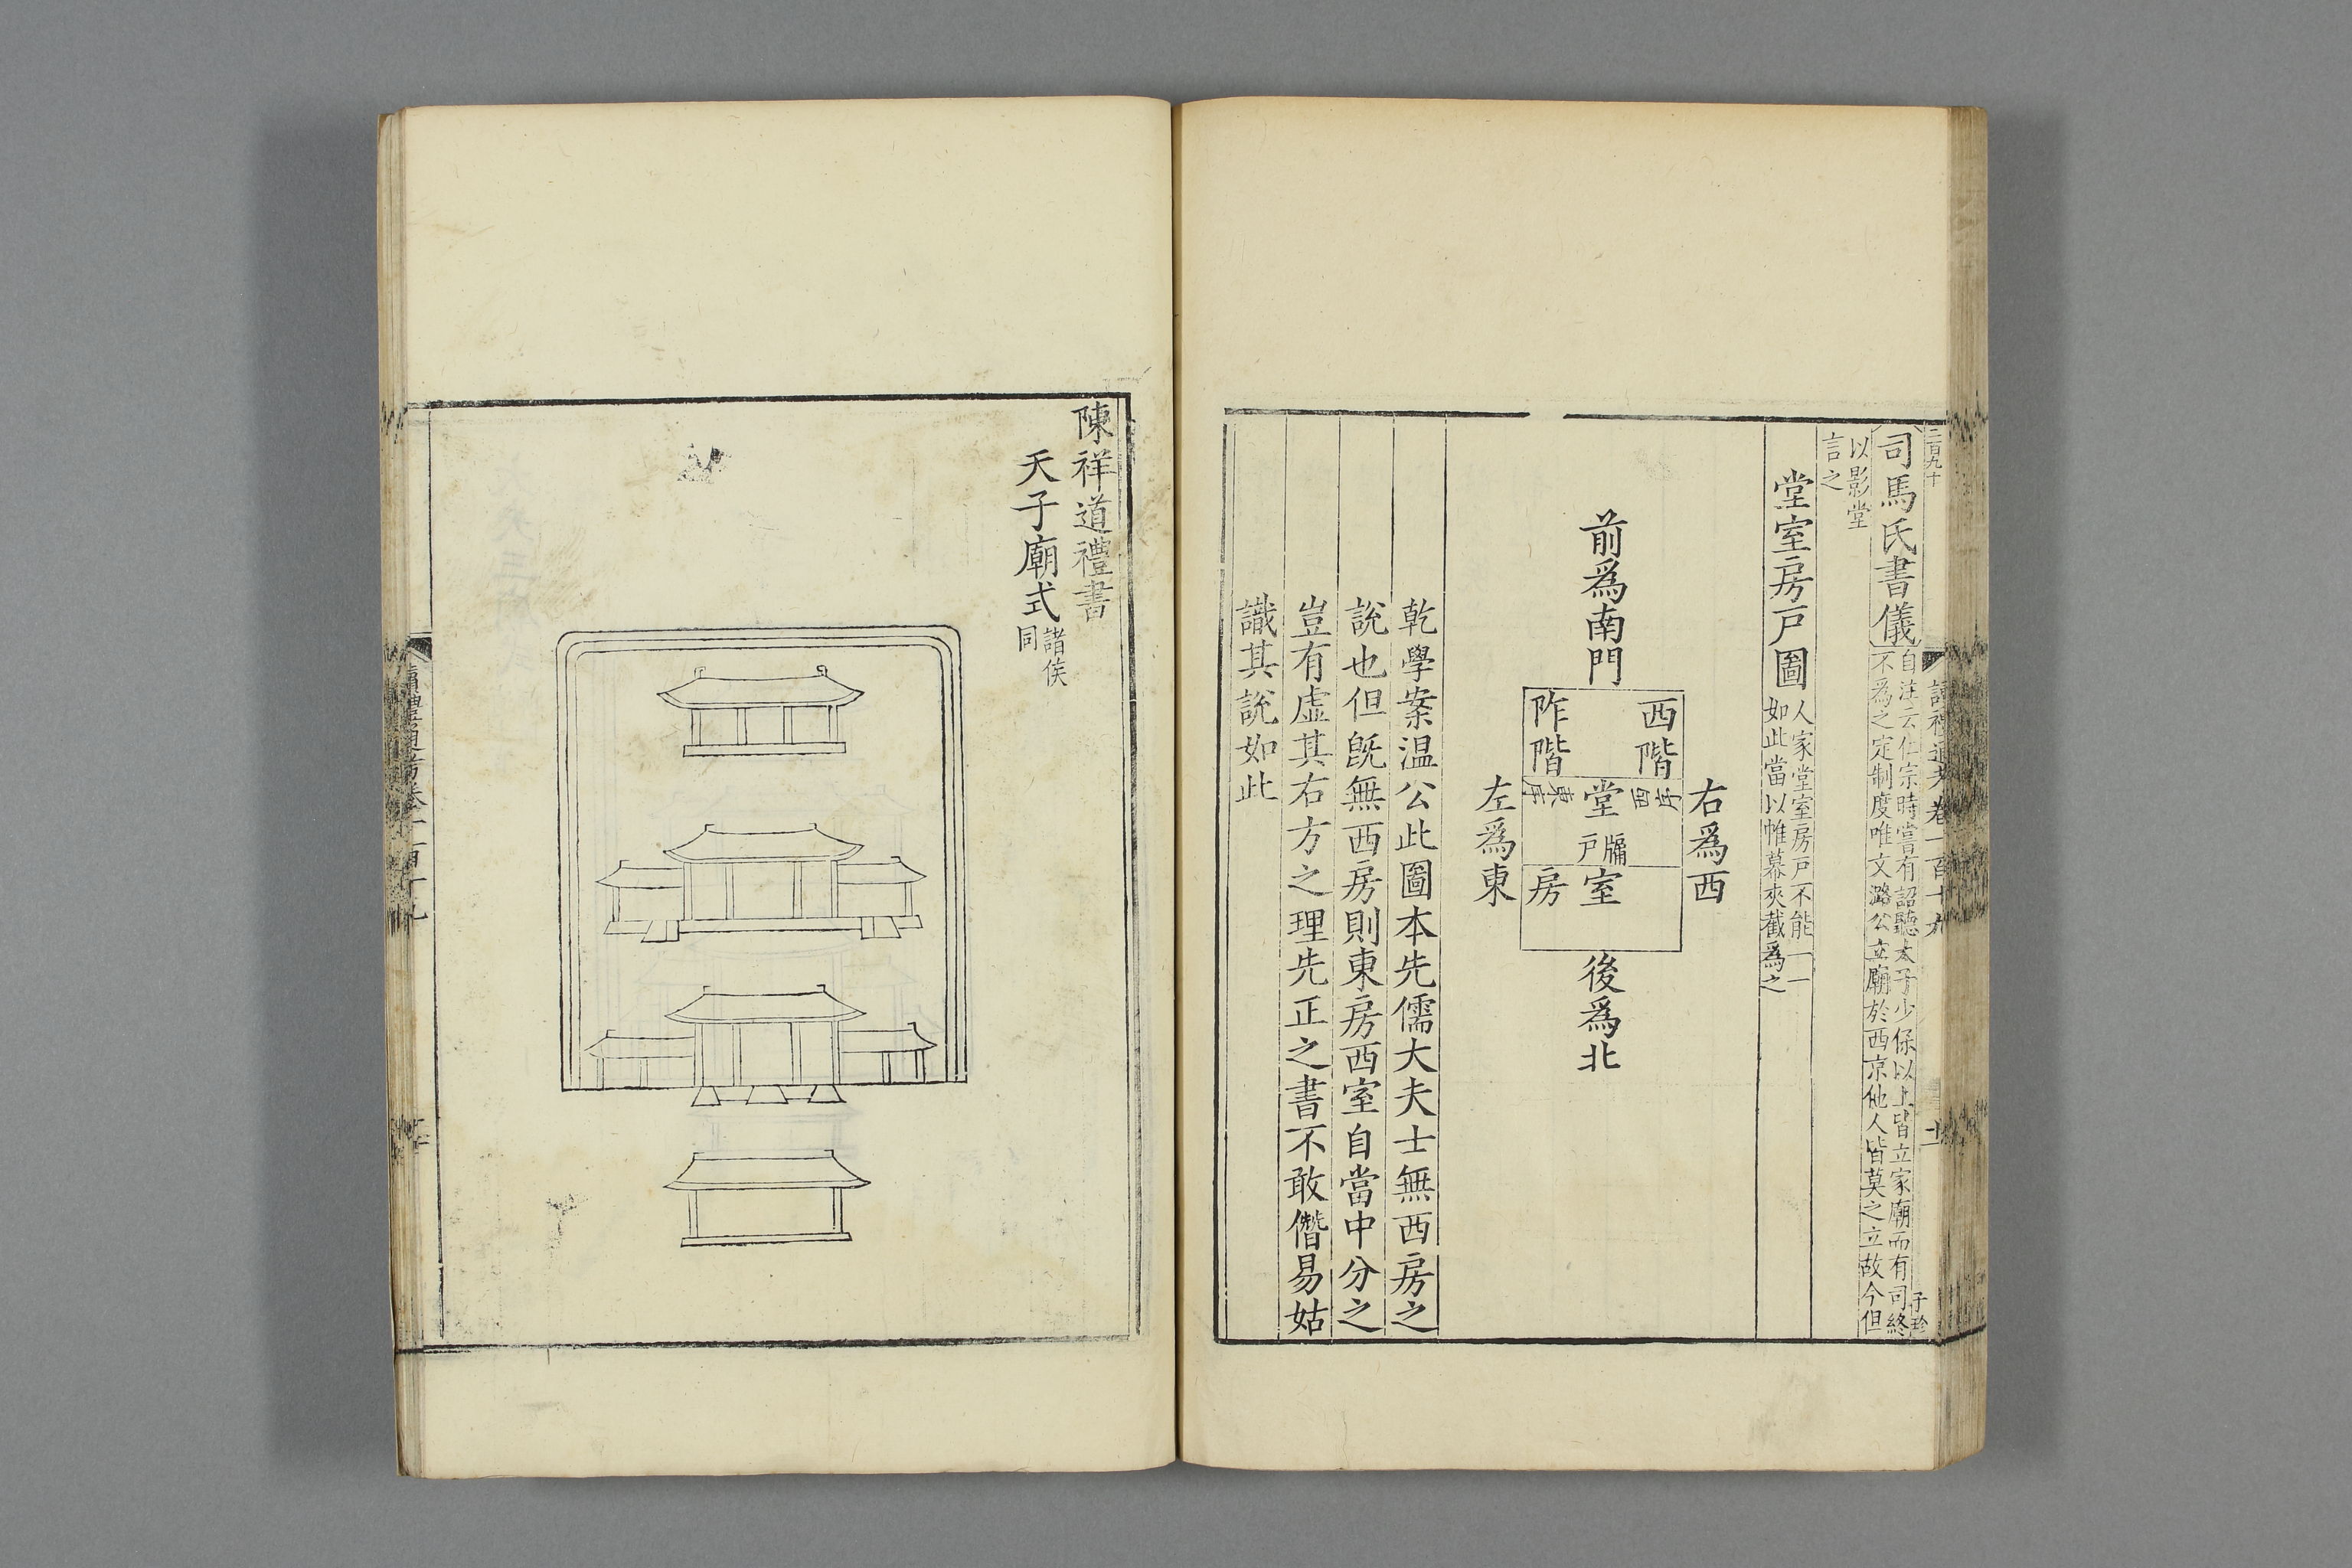 二百九十
讀禮通考卷一百十九
司馬氏書儀
自注云仁宗時嘗有詔聽太子少保以上皆立家廟而有司終
不爲之定制度唯文潞公立廟於西京他人皆莫之立故今但
以影堂
言之
堂室房戸圖
人家堂室房戸不能一一
如此當以帷幕夾截爲之
右爲西
前爲南門
西階
阼階
堂
東序
牖
戸
室
房
後爲北
左爲東
乾學案温公此圖本先儒大夫士無西房之
說也但旣無西房則東房西室自當中分之
豈有虛其右方之理先正之書不敢僭易姑
識其說如此
陳祥道禮書
天子廟式
諸侯
同
讀禮通考卷一百十九